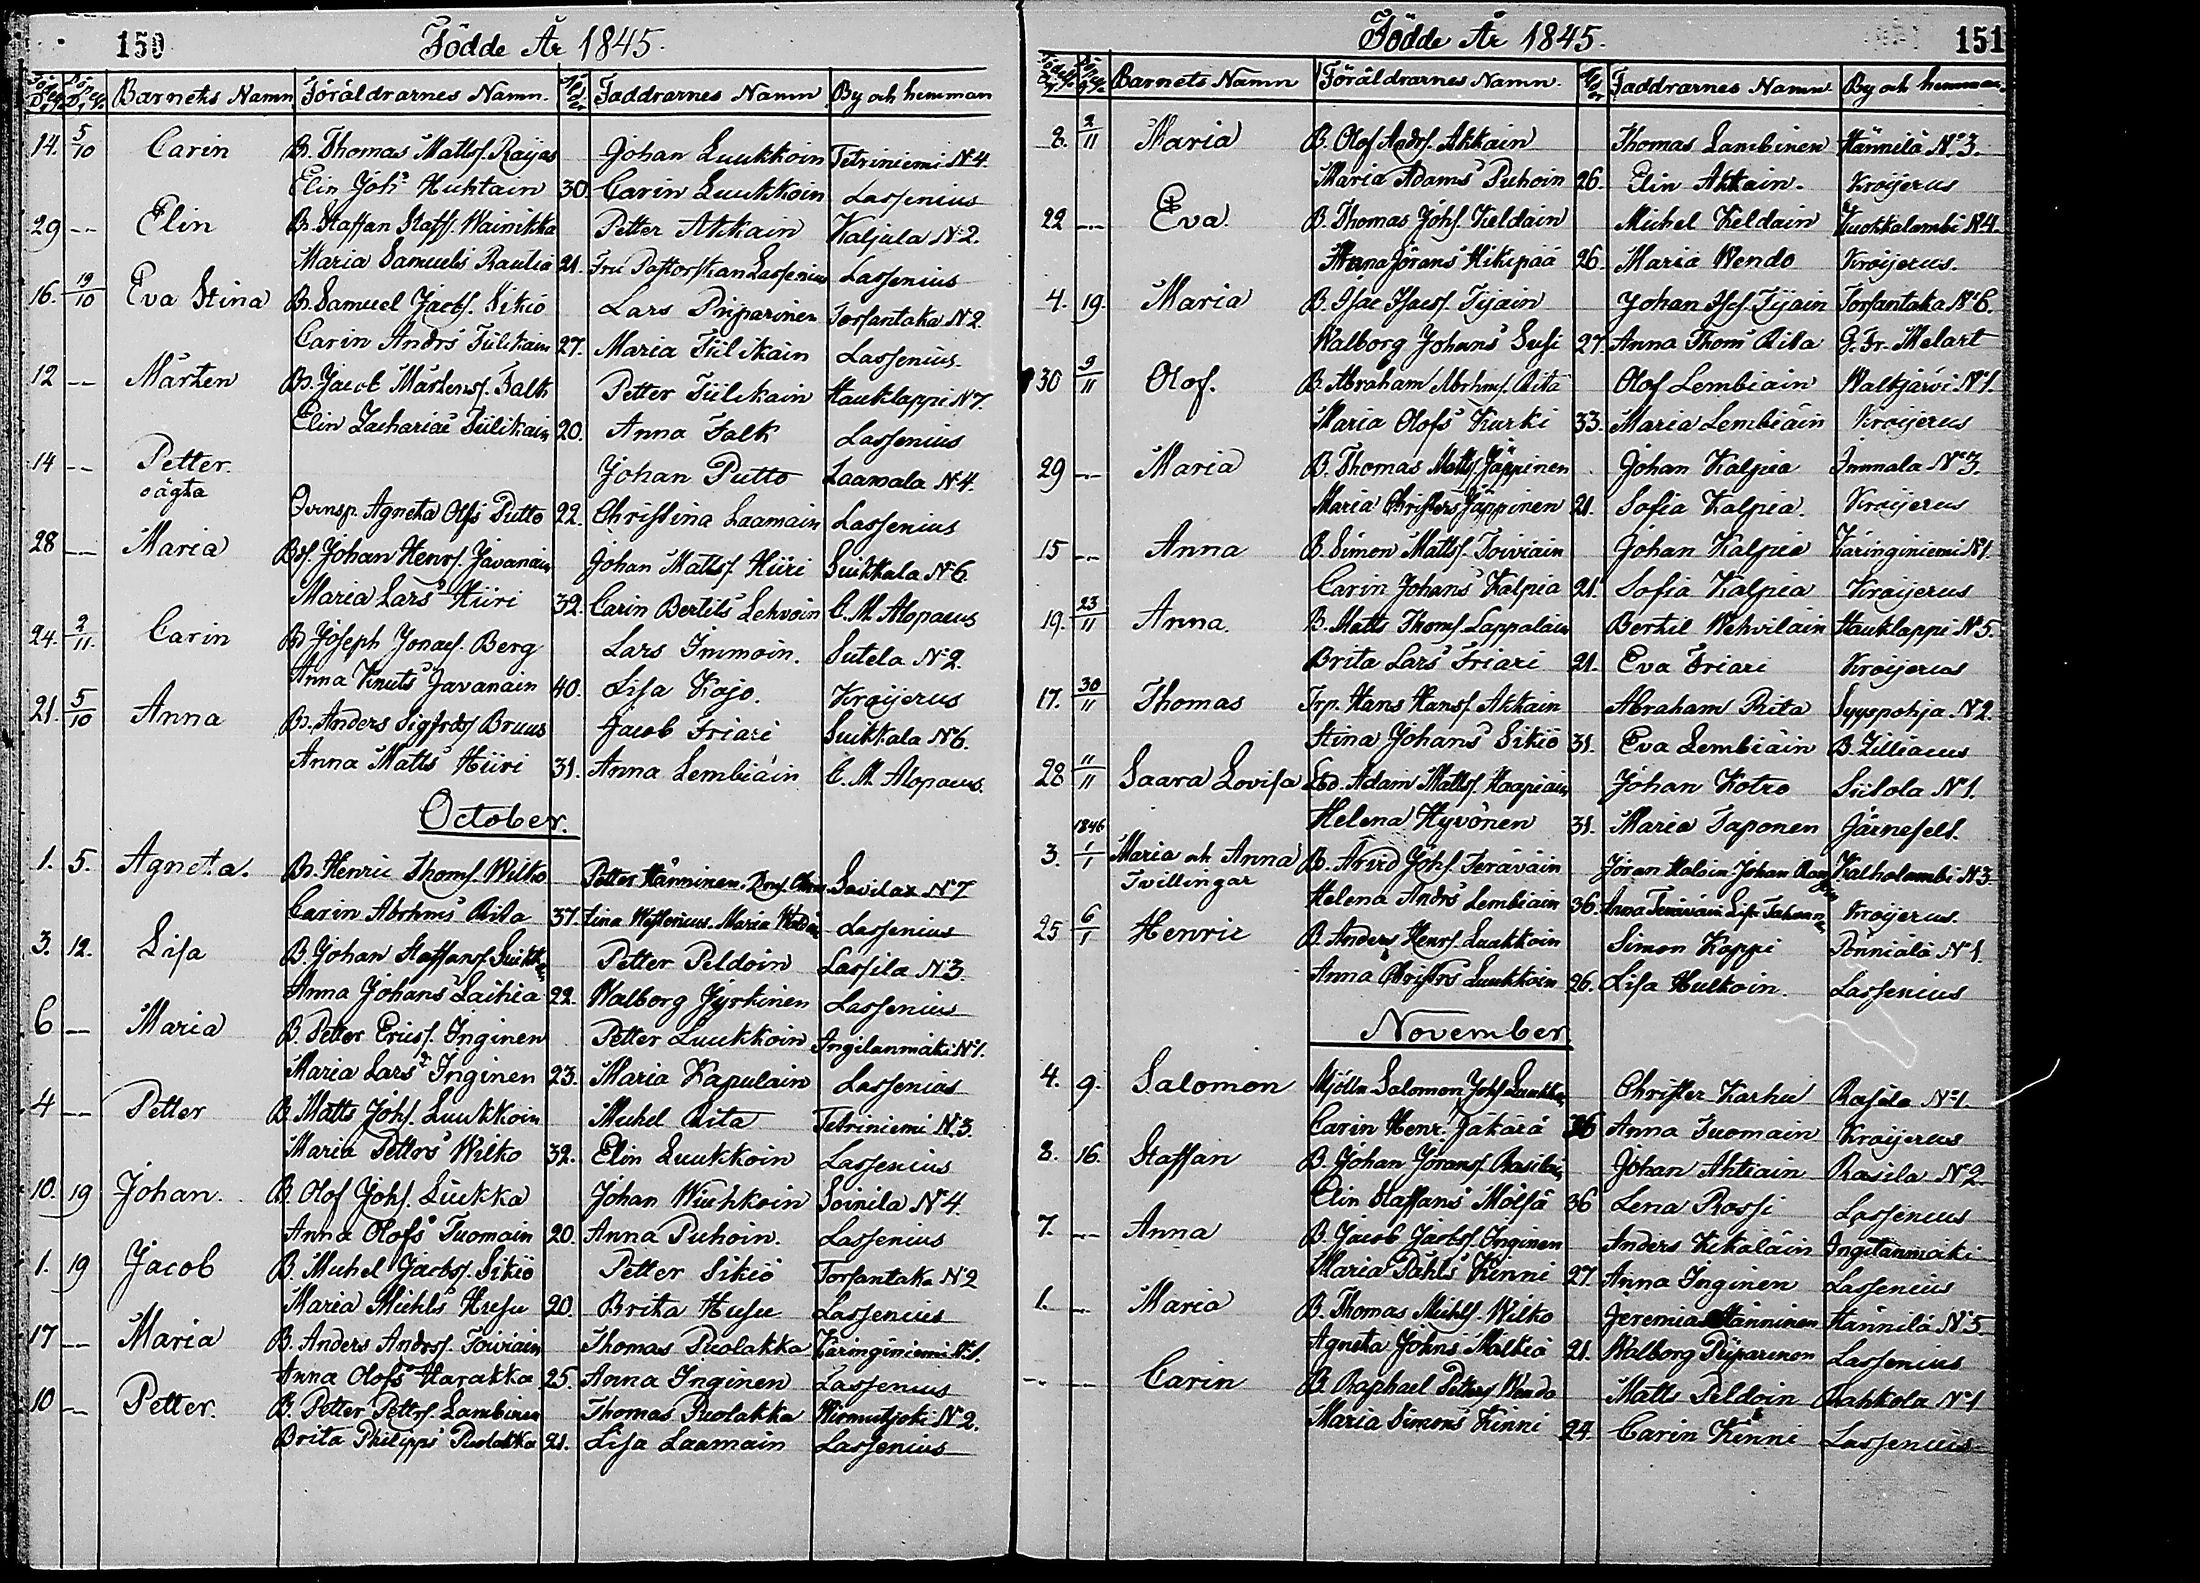 150 Födde År 1845.
Barnets Namn Föräldrarnes Namn. Faddrarnes Namn By och hemman
14. 5/10 Carin B. Thomas Mattss. Raijas Johan Luukkoin Tetriniemi N:4.
Elin Joh:s Huhtain 30. Carin Luukkoin Lassenius
29 -- Elin B. Staffan Staff. Wainikka Petter Akkain Kaljula N:2.
Maria Samuels Rautia 21. Fru Pastorskan Lassenius Lassenius
16. 19/10 Eva Stina B. Samuel Jacobs. Sikiö Lars Piiparinen Torsantaka N:2
Carin Andrs Tiilikain 27. Maria Tiilikain Lassenius.
12 -- Mårten B. Jacob Mårtenss. Falk Petter Tiilikain Hauklappi N:7.
Elin Zacharias Tiilikain 20. Anna Falk Lassenius
14 -- Petter. Johan Putto Laamala N:4.
oägta Qvinsp. Agneta Olfs Putto 22. Christina Laamain Lassenius
28 -- Maria Bs. Johan Henrs. Javanain Johan Mattss. Hiiri Suikkala N:6.
Maria Lars Hiiri 32. Carin Bertils Lehvoin C. M. Alopaeus
24. 2/11. Carin B. Joseph Jonaes. Berg Lars Immoin. Sutela N:2.
Anna Knuts Javanain 40. Lisa Kojo. Kroijerus
21. 5/10 Anna B. Anders Sigfrds. Bruus Jacob Friari Suikkala N:6.
Anna Matts Hiiri 31. Anna Lembiäin C. M. Alopaeus.
October.
1. 5. Agneta. B. Henric Thoms. Wilko Petter Hänninen. Savilax N:7
Carin Abrhms Rita 37. Maria Lassenius
3. 12. Lisa B. Johan Staffanss. Petter Peldoin Lassila N:3.
Anna Johans Laihia 22. Walborg Jyrkinen Lassenius
6 -- Maria B. Petter Ericss. Inginen Petter Luukkoin Ingilanmäki N:1.
Maria Lars Inginen 23. Maria Kapulain Lassenius
4 -- Petter B. Matts Johs. Luukkoin Michel Rita Tetriniemi N:3.
Maria Petters Wilko 32. Elin Luukkoin Lassenius
10. 19 Johan. B. Olof Johs. Liukka Johan Wiuhkoin Soinila N:4.
Anna Olofs Tuomain 20. Anna Puhoin. Lassenius
1. 19 Jacob B. Michel Jacobs. Sikiö Petter Sikiö Torsantaka N:2
Maria Michls Husu 20. Brita Husu Lassenius
17 -- Maria B. Anders Andrss. Toiviain Thomas Puolakka Käringiniemi N:1.
Anna Olofs Harakka 25. Anna Inginen Lassenius
10 -- Petter. B. Petter Pettrs. Lambinen Thomas Puolakka Wirmutjoki N:2.
Brita Philipps Puolakka 21. Lisa Laamain Lassenius
Födde År 1845. 151
Barnets Namn Föräldrarnes Namn. Faddrarnes Namn By och hemman.
8. 2/11 Maria B. Olof Andrs. Akkain Thomas Lambinen Hännilä N:3.
Maria Adams Puhoin 26. Elin Akkain. Kroijerus
22 -- Eva. B. Thomas Johs. Keldain Michel Keldain Kuokkalambi N:4.
Anna Jörans Hikipää 26. Maria Wendo Kroijerus.
4. 19. Maria B. Isac Isacs. Tijain Johan Iscs. Tijain Torsantaka N:6.
Walborg Johans Susi 27. Anna Thoms Rita G. Fr. Melart
30 9/11 Olof. B. Abraham Abrhms. Rita Olof Lembiain Waltjärvi N:1.
Maria Olofs Kurki 33. Maria Lembiäin Kroijerus
29 -- Maria B. Thomas Matts. Jäppinen Johan Kalpia Immala N:3.
Maria Christers Jäppinen 21. Sofia Kalpia. Kroijerus
15 -- Anna B. Simon Mattss. Toiviain Johan Kalpia Käringiniemi N:1.
Carin Johans Kalpia 21. Sofia Kalpia Kroijerus
19. 23/11 Anna. B. Matts Thoms. Lappalain Bertil Wehvilain Hauklappi N:5.
Brita Lars Friari 21. Eva Friari Kroijerus
17. 30/11 Thomas Trp. Hans Hanss. Akkain Abraham Rita Syyspohja N:2.
Stina Johans Sikiö 31. Eva Lembiäin B. Zilliacus
28 11/11 Saara Lovisa Adam Mattss. Haapiain Johan Kotro Siilola N:1.
Helena Hyvönen 31. Maria Taponen Järnefelt.
3. 1846 1/1 Maria och Anna B. Arvid Johs. Teräväin Jöran Johan Kalholambi N:3
Tvillingar Helena Andrs Lembiain 36. Anna Teräväin Lisa Kroijerus.
25 6/1 Henric B. Anders Henrs. Luukkoin Simon Koppi Pönniälä N:1
Anna Christers Luukkoin 26. Lisa Hulkoin. Lassenius
November.
4. 9. Salomon Mjölln Salomon Johs. Christer Karhu Rasila N:1.
Carin Henr. Jäkärä 36 Anna Tuomain Kroijerus
8. 16. Staffan B. Johan Jöranss. Rasilain Johan Ahtiain Rasila N:2
Elin Staffans Mölsä 36 Lena Rossi Lassenius
7. -- Anna B. Jacob Jacobss. Inginen Anders Kekäläin Ingilanmäki
Maria Påhls Kinni 27. Anna Inginen Lassenius
1. -- Maria B. Thomas Michls. Wilko Jeremia Hänninen Hännilä N:5
Agneta Johns Malkia 21. Walborg Piiparinen Lassenius
-- -- Carin B. Raphael Petters. Wendo Matts Peldoin Rahkola N:1
Maria Simons Kinni 24. Carin Kinni Lassenius